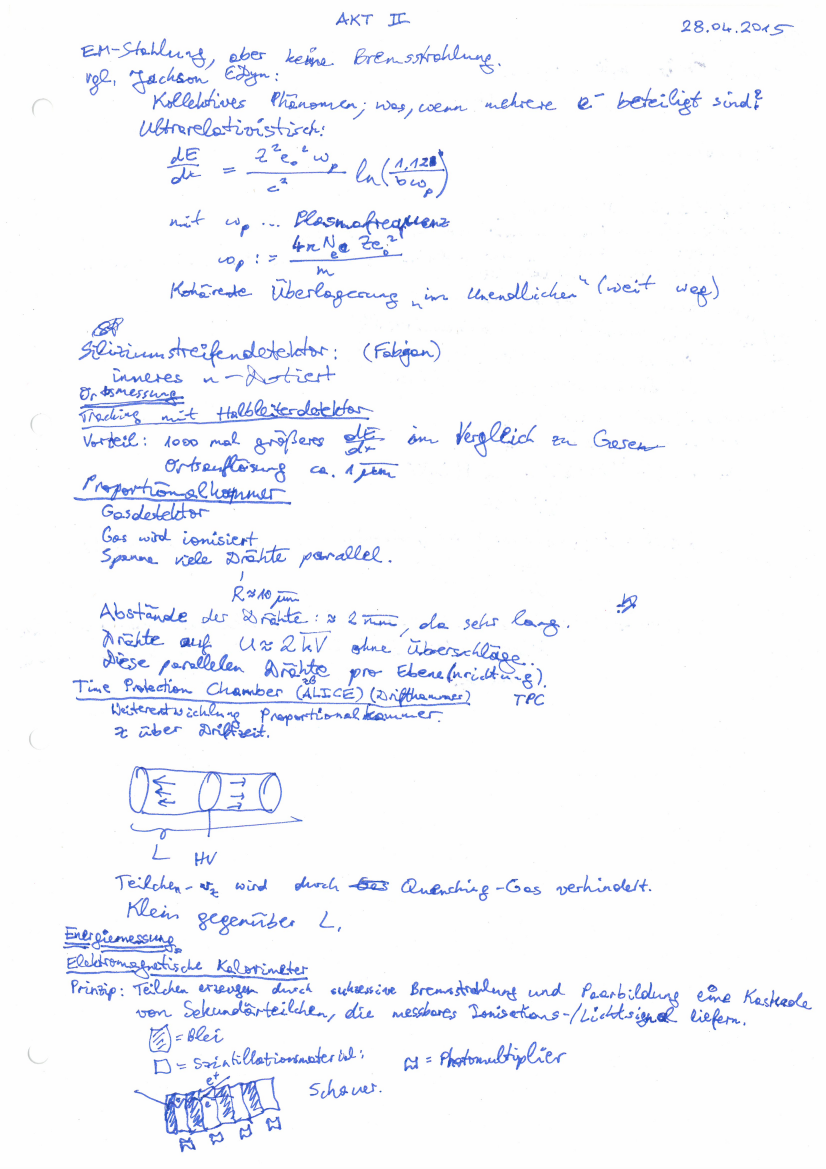 AKT II
28.04.2015
EM-Stahlung, aber keine Bremsstrahlung.
vgl. Jackson EDyn:
Kollektives Phänomen; was, wenn mehrere e⁻ beteiligt sind?
Ultrarelativistisch:
dE/dx = Z²e₀²ωₚ/c² ln(1,123/bωₚ)
mit ωₚ ... Plasmafrequenz
ωₚ := 4πNₑ Ze₀²/m
Kohärente Überlagerung „im Unendlichen“ (weit weg)
Siliziumstreifendetektor: (Fabjan)
inneres n-Dotiert
Ortsmessung
Tracking mit Halbleiterdetektor
Vorteil: 1000 mal größeres dE/dx im Vergleich zu Gasen
Ortsauflösung ca. 1 µm
Proportionalkammer
Gasdetektor
Gas wird ionisiert
Spanne viele Drähte parallel.
R≈10 µm
Abstände der Drähte: ≈ 2 mm, da sehr lang.
Drähte auf U≈2 kV ohne Überschläge.
Diese parallelen Drähte pro Ebene(nrichtung).
Time Protection Chamber (zB ALICE) (Driftkammer) TPC
Weiterentwicklung Proportionalkammer.
z über Driftzeit.
L HV
Teilchen-v_z wird durch Quenching-Gas verhindert.
Klein gegenüber L.
Energiemessung
Elektromagnetische Kalorimeter
Prinzip: Teilchen erzeugen durch sukzessive Bremsstrahlung und Paarbildung eine Kaskade
von Sekundärteilchen, die messbares Ionisations-/Lichtsignal liefern.
= Blei
= Szintillationsmaterial; = Photomultiplier
e⁺
e⁻
Schauer.